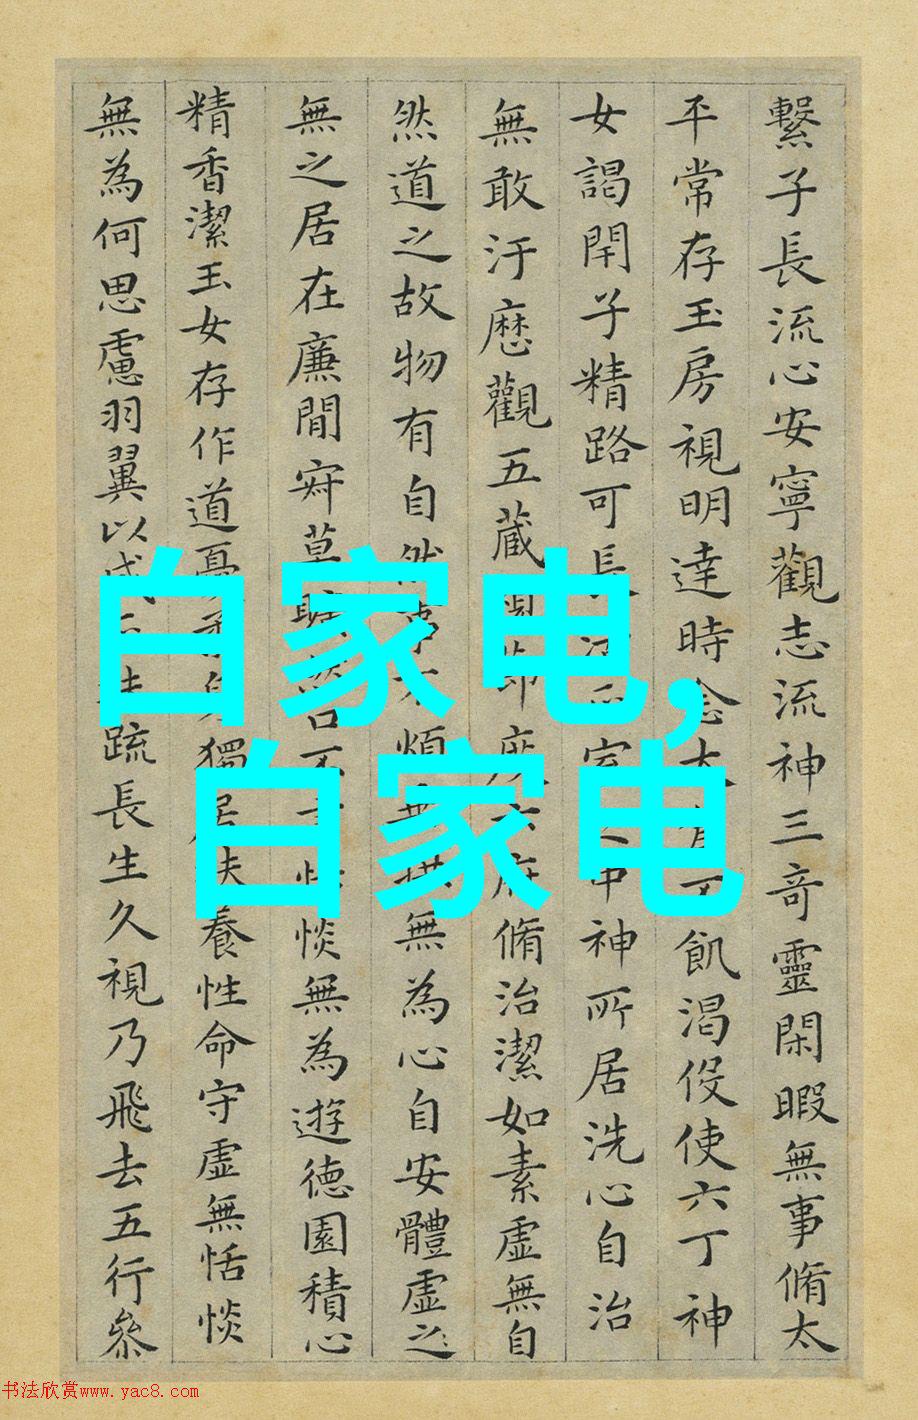 繫子長流心安寧觀志流神三竒靈閑暇無事脩太
平常存玉房視明達時念大不飢渴役使六丁神
女謁閇子精路可長室中神所居洗心自治
無敢汙歷觀五藏節度六府脩治潔如素虛無自
然道之故物有自然事不煩無為心自安體虛之
無之居在廉間寂莫曠然口不言恬惔無為遊德園積心
精香潔玉女存作道憂柔身獨居扶養性命守虛無恬惔
無為何思慮羽翼以成疏長生久視乃飛去五行參
白家电,
白家电
书法欣赏www.yac8.com